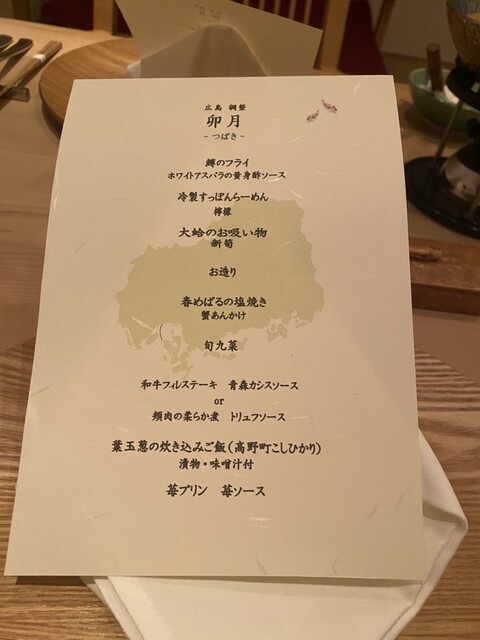 広島 稠整
卯月
-つばき-
鱒のフライ
ホワイトアスパラの黄身酢ソース
冷製すっぽんらーめん
檸檬
大蛤のお吸い物
新筍
お造り
春めばるの塩焼き
蟹あんかけ
旬九菜
和牛フィレステーキ　青森カシスソース
or
頬肉の柔らか煮　トリュフソース
葉玉葱の炊き込みご飯(高野町こしひかり)
漬物・味噌汁付
苺プリン　苺ソース